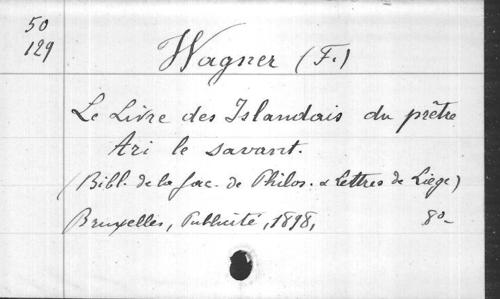 50
129
Wagner (F.)
Le Livre des Islandais du prêtre
Ari le savant.
(Bibl. de la fac. de Philos. & Lettres de Liège)
Bruxelles, Publicité, 1898, 8o_